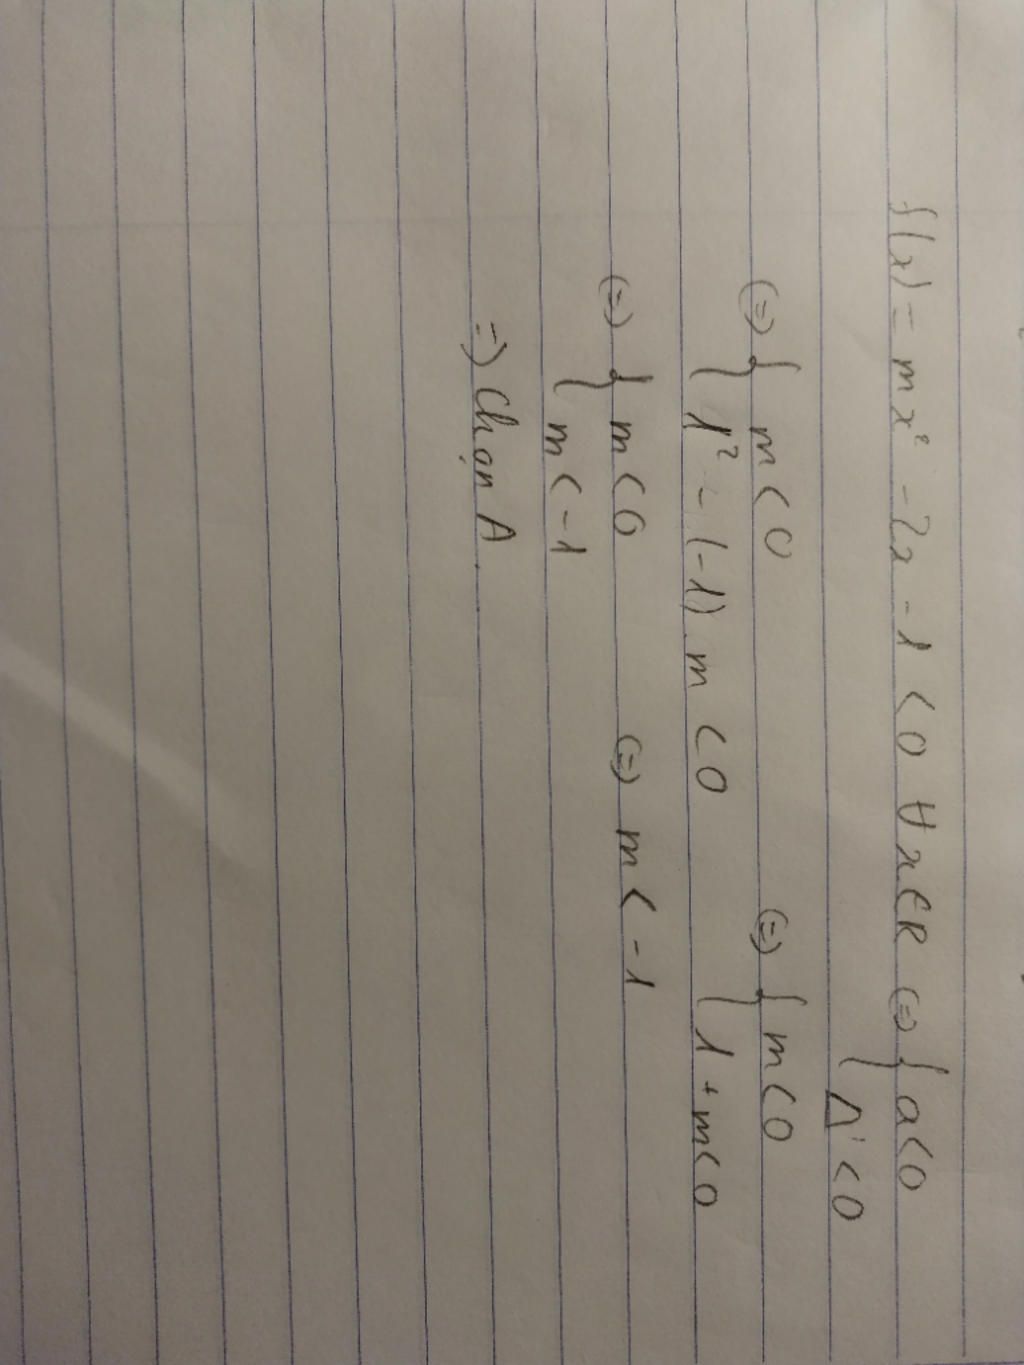 f(x) = mx² - 2x - 1 < 0 ∀ x ∈ R (=) { a < 0
Δ' < 0
(=) { m < 0 (=) { m < 0
1² - (-1) m < 0 1 + m < 0
(=) { m < 0 (=) m < -1
m < -1
=) Chọn A.